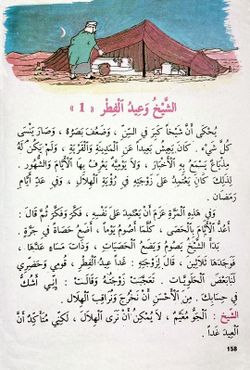 الشَّيْخُ وَعِيدُ الْفِطْرِ « 1 »
يُحْكَى أَنَّ شَيْخاً كَبُرَ فِي السِّنِّ ، وَضَعُفَ بَصَرُهُ ، وَصَارَ يَنْسَى
كُلَّ شَيْءٍ . كَانَ يَعِيشُ بَعِيداً عَنِ الْمَدِينَةِ وَالْقَرْيَةِ ، وَلَمْ يَكُنْ لَهُ
مِذْيَاعٌ يَسْمَعُ بِهِ الْأَخْبَارَ ، وَلَا يَوْمِيَّةٌ يَعْرِفُ بِهَا الْأَيَّامَ وَالشُّهُورَ .
لِذَلِكَ كَانَ يَعْتَمِدُ عَلَى زَوْجَتِهِ فِي رُؤْيَةِ الْهِلَالِ ، وَفِي عَدِّ أَيَّامِ
رَمَضَانَ .
وَفِي هَذِهِ الْمَرَّةِ عَزَمَ أَنْ يَعْتَمِدَ عَلَى نَفْسِهِ ، فَكَّرَ وَفَكَّرَ ثُمَّ قَالَ :
أَعُدُّ الْأَيَّامَ بِالْحَصَى ، كُلَّمَا أَصُومُ يَوْماً ، أَضَعُ حَصَاةً فِي جَرَّةٍ .
بَدَأَ الشَّيْخُ يَصُومُ وَيَضَعُ الْحَصَيَاتِ ، وَذَاتَ مَسَاءٍ عَدَّهَا ،
فَوَجَدَهَا ثَلَاثِينَ ، قَالَ لِزَوْجَتِهِ : غَداً عِيدُ الْفِطْرِ ، قُومِي وَحَضِّرِي
لَنَا بَعْضَ الْحَلَوِيَّاتِ . تَعَجَّبَتْ زَوْجَتُهُ وَقَالَتْ : إِنِّي أَشُكُّ
فِي حِسَابِكَ . مِنَ الْأَحْسَنِ أَنْ نَخْرُجَ وَنُرَاقِبَ الْهِلَالَ .
الشَّيْخُ : الْجَوُّ مُغَيِّمٌ ، لَا يُمْكِنُ أَنْ نَرَى الْهِلَالَ ، لَكِنِّي مُتَأَكِّدٌ أَنَّ
الْعِيدَ غَداً .
158